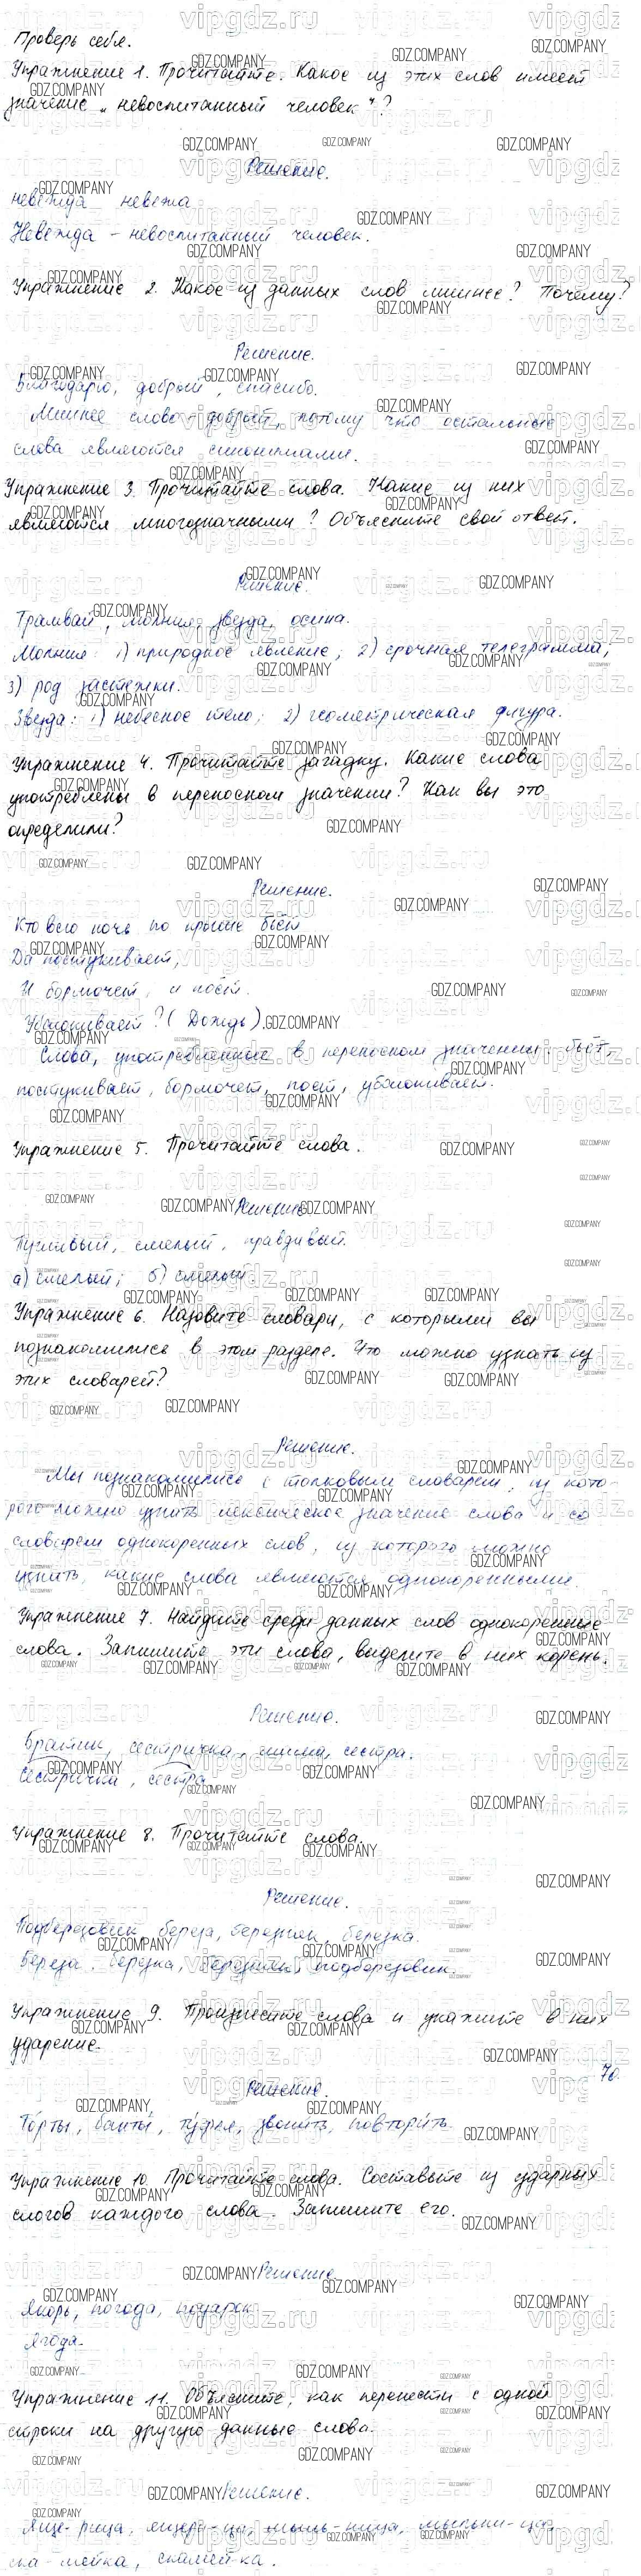 Проверь себя.
Упражнение 1. Прочитайте. Какое из этих слов имеет
значение „невоспитанный человек"?
Решение.
невежда невежа
Невежда – невоспитанный человек.
Упражнение 2. Какое из данных слов лишнее? Почему?
Решение.
Благодарю, добрый, спасибо.
Лишнее слово – добрый, потому что остальные
слова являются синонимами.
Упражнение 3. Прочитайте слова. Какие из них
являются многозначными? Объясните свой ответ.
Решение.
Трамвай, молния, звезда, осина.
Молния: 1) природное явление; 2) срочная телеграмма;
3) род застежки.
Звезда: 1) небесное тело; 2) геометрическая фигура.
Упражнение 4. Прочитайте загадку. Какие слова
употреблены в переносном значении? Как вы это
определили?
Решение.
Кто всю ночь по крыше бьёт
Да постукивает,
И бормочет, и поёт.
Убаюкивает? (Дождь).
Слова, употребленные в переносном значении: бьёт,
постукивает, бормочет, поёт, убаюкивает.
Упражнение 5. Прочитайте слова.
Решение
Пугливый, смелый, правдивый.
а) смелый; б) смелый
Упражнение 6. Назовите словари, с которыми вы
познакомились в этом разделе. Что можно узнать из
этих словарей?
Решение.
Мы познакомились с толковым словарем, из кото-
рого можно узнать лексическое значение слова и со
словарем однокоренных слов, из которого можно
узнать, какие слова являются однокоренными.
Упражнение 7. Найдите среди данных слов однокоренные
слова. Запишите эти слова, выделите в них корень.
Решение.
Братик, сестричка, мама, сестра.
Сестричка, сестра
Упражнение 8. Прочитайте слова.
Решение.
Подберезовик, береза, березняк, березка.
Береза, березка, березняк, подберезовик.
Упражнение 9. Произнесите слова и укажите в них
ударение.
70.
Решение.
То́рты, ба́нты, ту́фля, звони́ть, повтори́ть
Упражнение 10. Прочитайте слова. Составьте из ударных
слогов каждого слова. Запишите его.
Решение
Якорь, погода, подарок
Ягода.
Упражнение 11. Объясните, как перенести с одной
строки на другую данные слова.
Решение.
Яще-рица, ящери-ца, мыль-ница, мыльни-ца,
ска-мейка, скамей-ка.